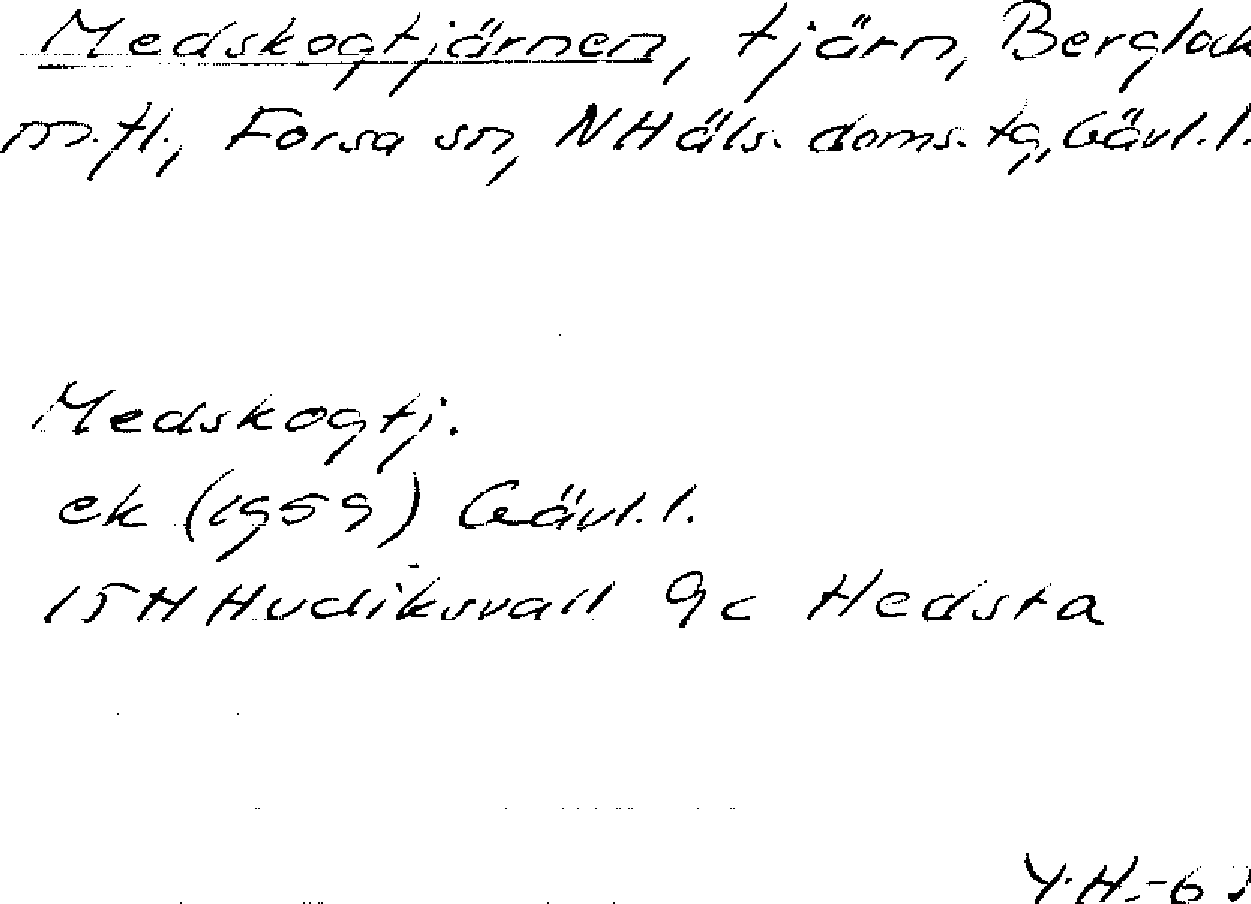 Medskogtjärnen, tjärn, Berglock
m.fl., Forsa sn, N Häls. doms. tg, Gävl.l.
Medskogtj.
ek (1959) Gävl.l.
15H Hudiksvall 9c Hedsta
Y.H.-6